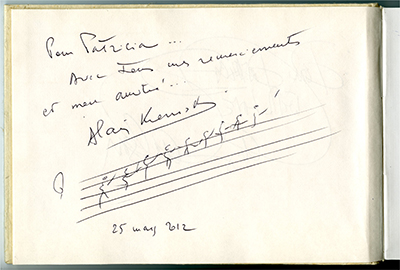 Pour Patricia...
Avec tous mes remerciements
et mon amitié...
Alain Kremski
25 mars 2012